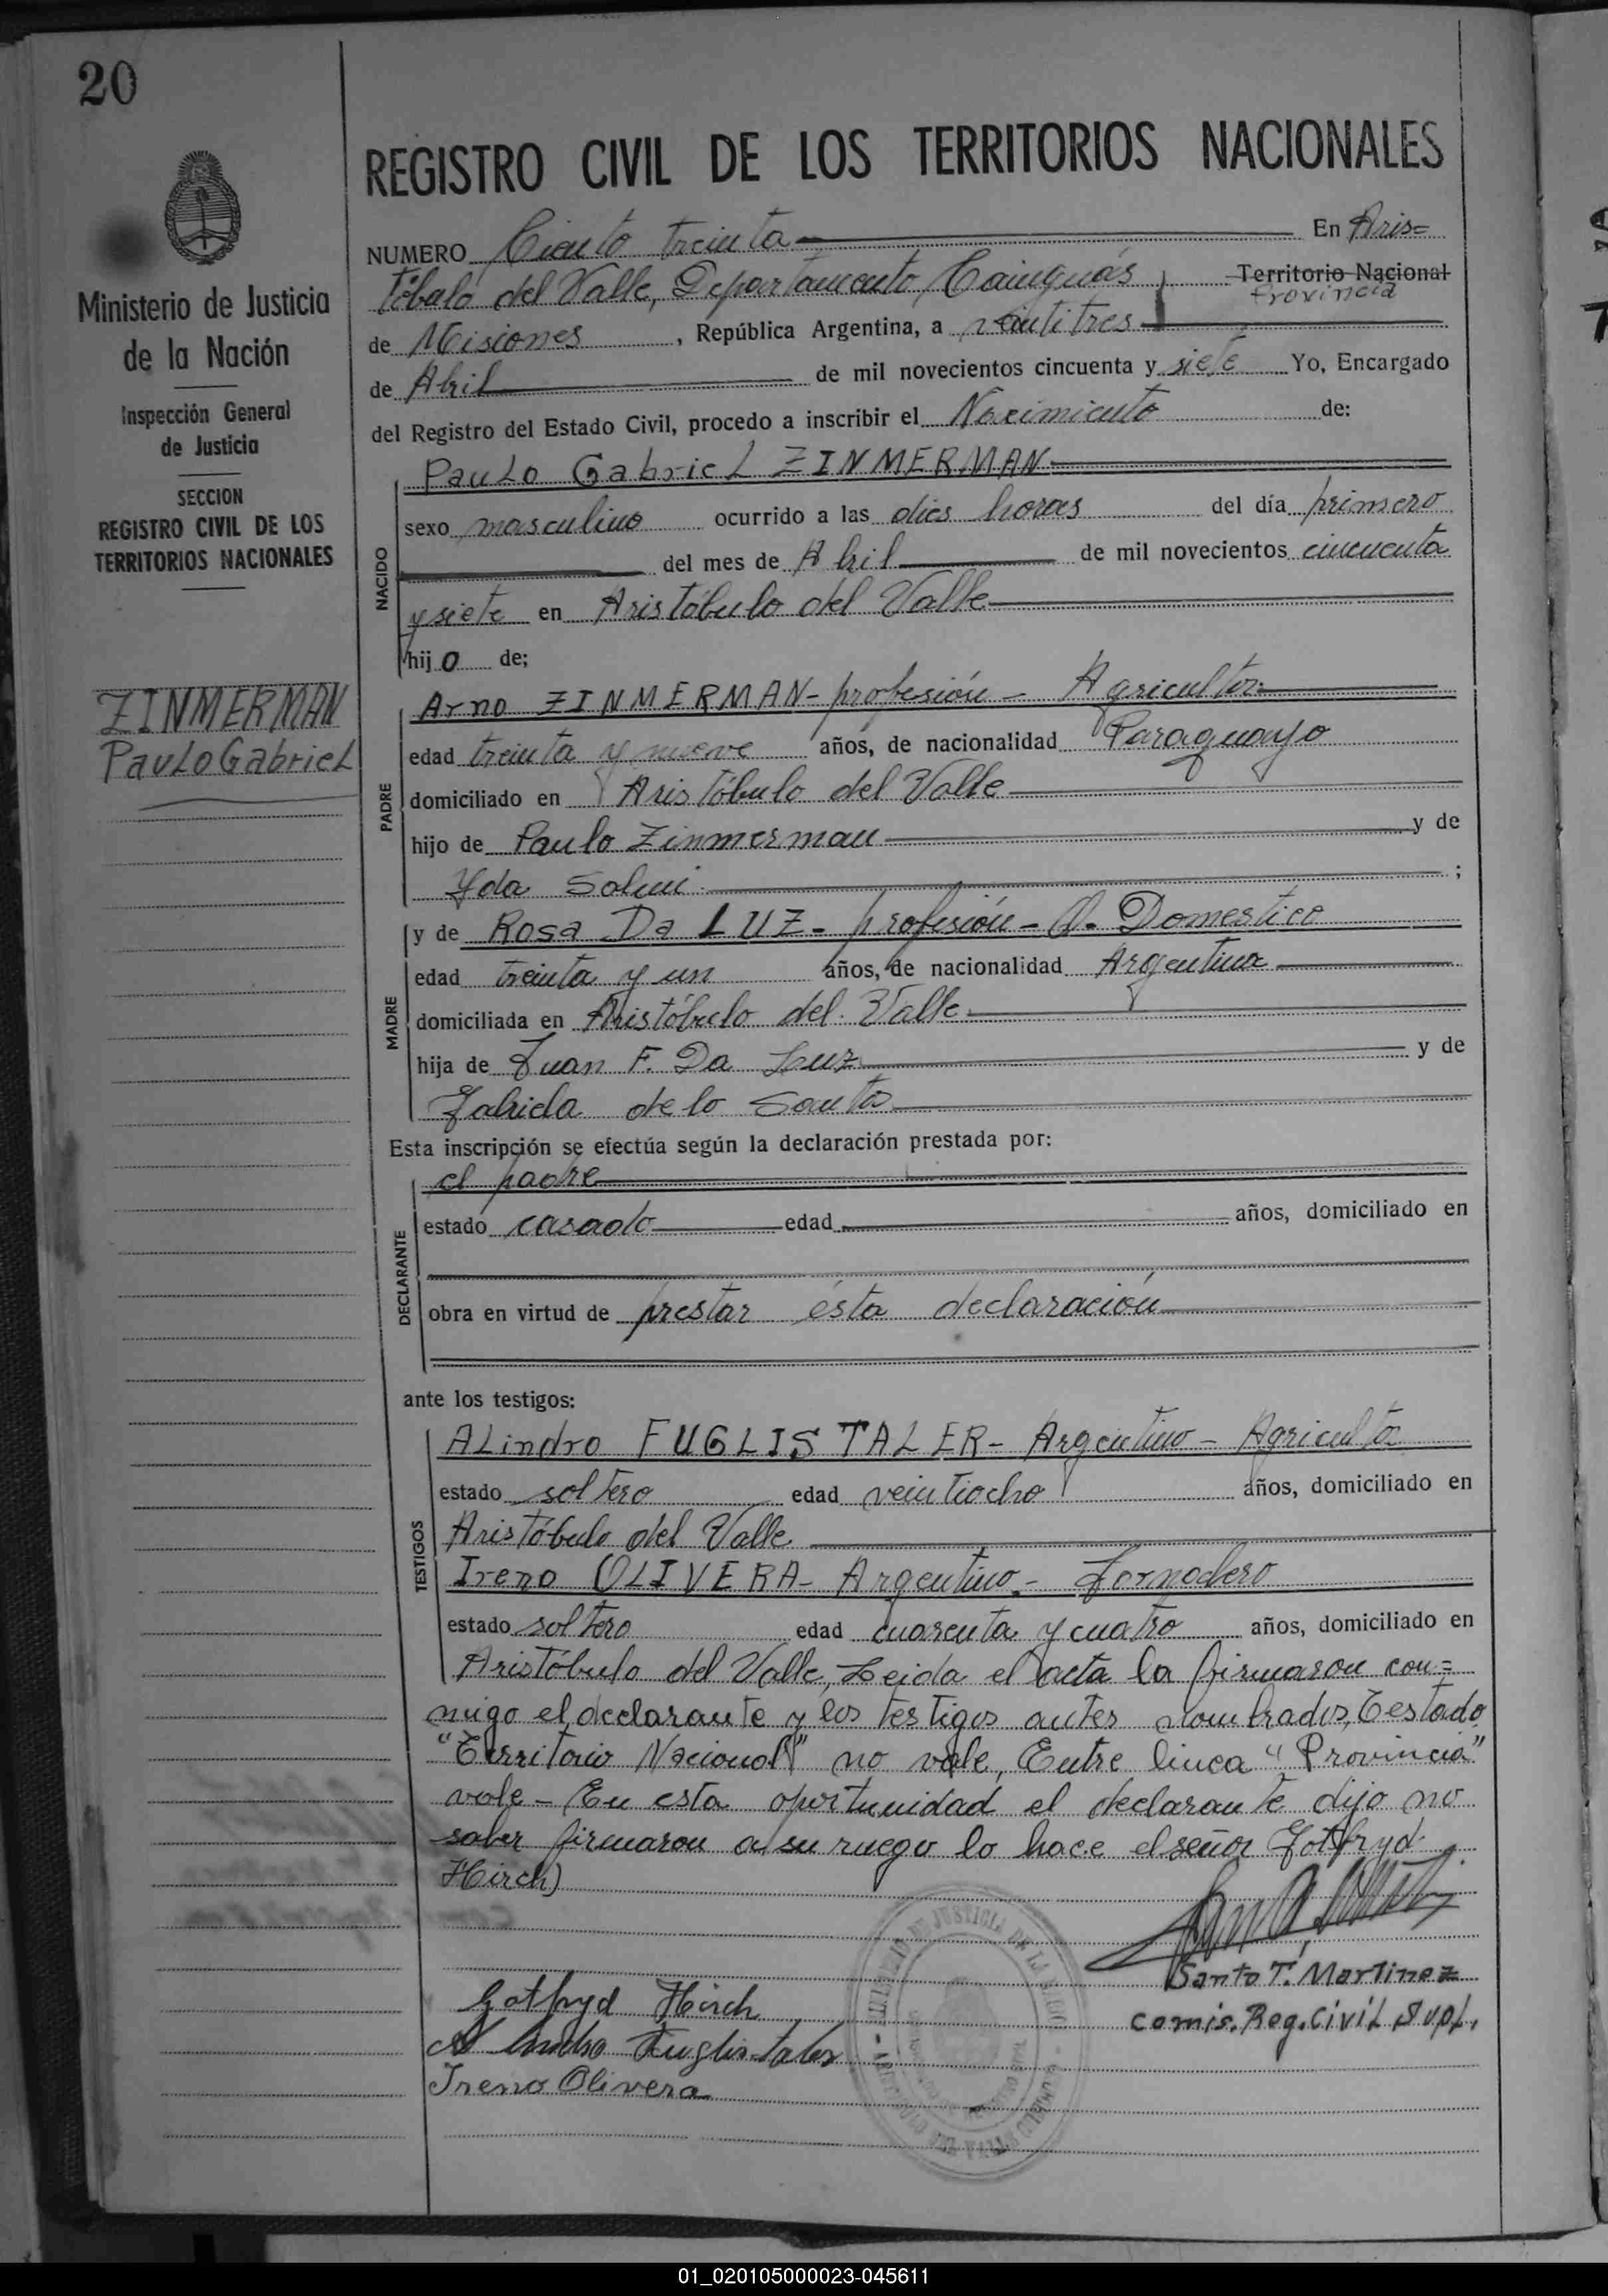 20
Ministerio de Justicia
de la Nación
Inspección General
de Justicia
SECCION
REGISTRO CIVIL DE LOS
TERRITORIOS NACIONALES
ZINMERMAN
PauLo GabrieL
REGISTRO CIVIL DE LOS TERRITORIOS NACIONALES
NUMERO Ciento treinta En Aris=
tóbalo del Valle, Departamento Cainguás Territorio Nacional
Provincia
de Misiones, República Argentina, a veintitres
de Abril de mil novecientos cincuenta y siete Yo, Encargado
del Registro del Estado Civil, procedo a inscribir el Nacimiento de:
NACIDO
PauLo GabrieL ZINMERMAN
sexo masculino ocurrido a las dies horas del día primero
del mes de Abril de mil novecientos cincuenta
y siete en Aristóbulo del Valle
hijo de;
PADRE
Arno ZINMERMAN- profesión - Agricultor
edad treinta y nueve años, de nacionalidad Paraguayo
domiciliado en Aristóbulo del Valle
hijo de Paulo Zinmerman y de
Yda ;
MADRE
y de Rosa Da LUZ- profesión - Q. Domestico
edad treinta y un años, de nacionalidad Argentina
domiciliada en Aristóbulo del Valle
hija de Juan F. Da Luz y de
de lo Santo
Esta inscripción se efectúa según la declaración prestada por:
DECLARANTE
el padre
estado casado edad años, domiciliado en
obra en virtud de prestar ésta declaración
ante los testigos:
TESTIGOS
ALindro FUGLISTALER- Argentino - Agriculto
estado soltero edad veintiocho años, domiciliado en
Aristóbulo del Valle
Ireno OLIVERA- Argentino.- Jornadero
estado soltero edad cuarenta y cuatro años, domiciliado en
Aristóbulo del Valle, Leida el acta la firmaron con=
migo el declarante y los testigos antes nombrados, Testado
"Territorio Nacional" no vale, Entre linea "Provincia"
vale - En esta oportunidad el declarante dijo no
saber firmaron a su ruego lo hace el señor Gotfryd
Hirch)
Santo T. Martinez
comis. Reg. CiviL SupL.
Gotfryd Hirch
Alindro Fuglistaler
Ireno Olivera
01_020105000023-045611